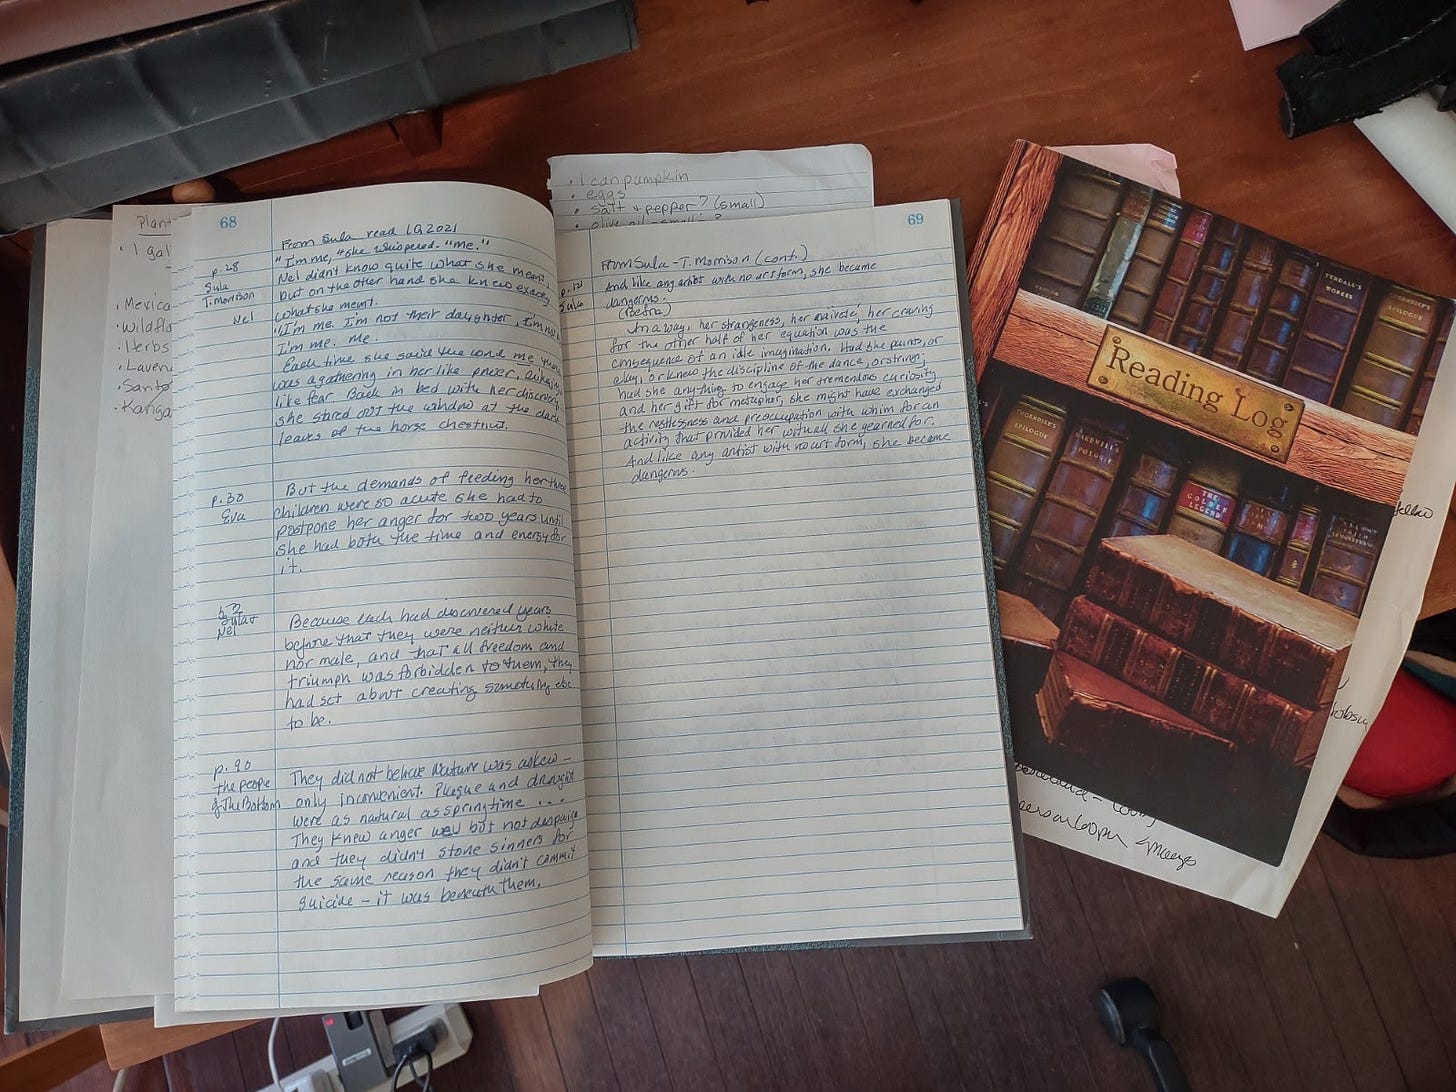 68
From Sula read 1Q 2021
p.28
Sula
T. morrison
Nel
"I'm me," she whispered. "me."
Nel didn't know quite what she meant,
but on the other hand she knew exactly
what she meant.
"I'm me. I'm not their daughter, I'm not
I'm me. me.
Each time she said the word me there
was a gathering in her like power, like joy,
like fear. Back in bed with her discovery
she stared out the window at the dark
leaves of the horse chestnut.
p.30
Eva
But the demands of feeding her three
children were so acute she had to
postpone her anger for two years until
she had both the time and energy for
it.
52
Sula +
Nel
Because each had discovered years
before that they were neither white
nor male, and that all freedom and
triumph was forbidden to them, they
had set about creating something else
to be.
p.90
the people
of The Bottom
They did not believe Nature was askew –
only inconvenient. Plague and drought
were as natural as springtime ....
They knew anger well but not despair
and they didn't stone sinners for
the same reason they didn't commit
suicide – it was beneath them.
69
From Sula - T. Morrison (cont.)
p. 121
Sula
And like any artist with no art form, she became
dangerous.
In a way, her strangeness, her naiveté, her craving
for the other half of her equation was the
consequence of an idle imagination. Had she paints, or
clay, or knew the discipline of the dance, or strings,
had she anything to engage her tremendous curiosity
and her gift for metaphor, she might have exchanged
the restlessness and preoccupation with whim for an
activity that provided her with all she yearned for.
And like any artist with no art form, she became
dangerous.
Plan
1 gal
Mexica
Wildflo
Herbs
Laven
Santo
Kanga
1 can pumpkin
eggs
salt + pepper? (small)
olive oil - small?
Reading Log
TYNDALL'S
WORKES
THORADILE'S
EPILOGUE
BAKEWELL'S
APOLOGIE
THE
GOLDEN
LEGEND